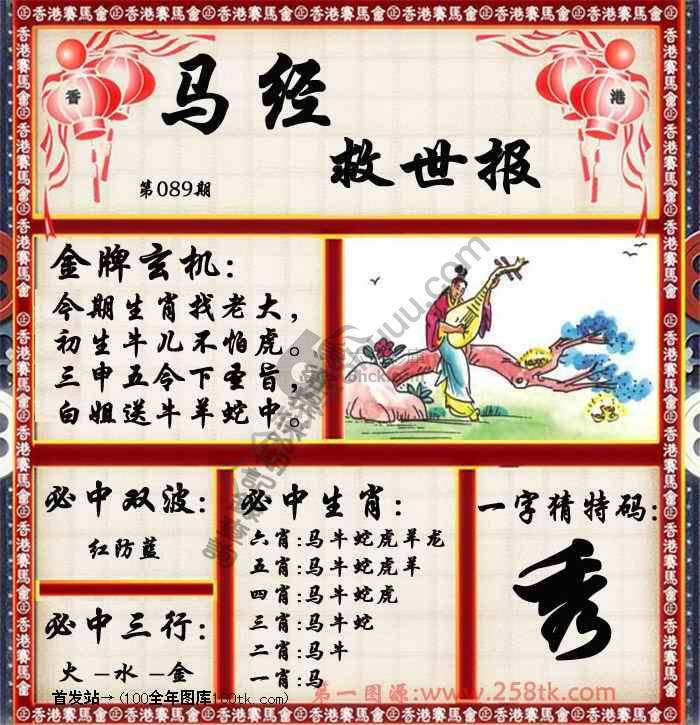 香港賽馬會
香
港
马经
救世报
第089期
金牌玄机:
今期生肖找老大，
初生牛儿不怕虎。
三申五令下圣旨，
白姐送牛羊蛇中。
必中双波:
红防蓝
必中三行:
火-水-金
必中生肖:
六肖:马牛蛇虎羊龙
五肖:马牛蛇虎羊
四肖:马牛蛇虎
三肖:马牛蛇
二肖:马牛
一肖:马
一字猜特码:
秀
首发站→(100全年图库100tk.com)
第一图源:www.258tk.com